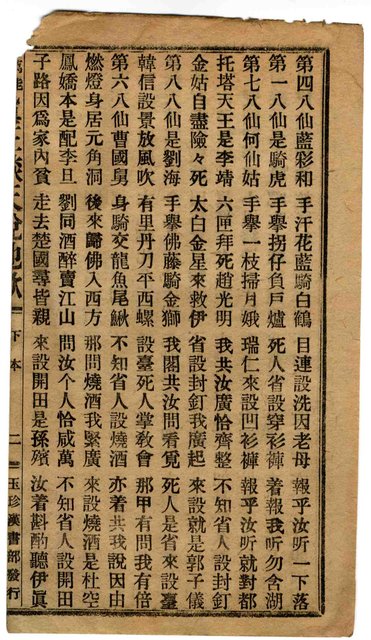 第四八仙藍彩和 手汗花藍騎白鶴 目連設洗因老母 報乎汝听一下落
第一八仙是騎虎 手舉拐仔負戶爐 死人省設穿衫褲 着報我听勿含湖
第七八仙何仙姑 手舉一枝掃月娥 瑞仁來設凹衫褲 報乎汝听就對都
托塔天王是李靖 六匣拜死趙光明 我共汝廣恰齊整 不知省人設封釘
金姑自盡險々死 太白金星來救伊 省設封釘我廣起 來設就是郭子儀
第八八仙是劉海 手舉佛藤騎金獅 我閣共汝問看覓 死人是省來設臺
韓信設景放風吹 有里丹刀平西螺 設臺死人掌教會 那甲有問我有倍
第六八仙曹國舅 身騎交龍魚尾鰍 不知省人設燒酒 亦着共我說因由
燃燈身居元角洞 後來歸佛入西方 那問燒酒我緊廣 來設燒酒是杜空
鳳嬌本是配李旦 劉同酒醉賣江山 問汝个人恰咸萬 不知省人設開田
子路因爲家內貧 走去楚國尋皆親 來設開田是孫殯 汝着斟酌聽伊眞
下本 二 玉珍漢書部發行